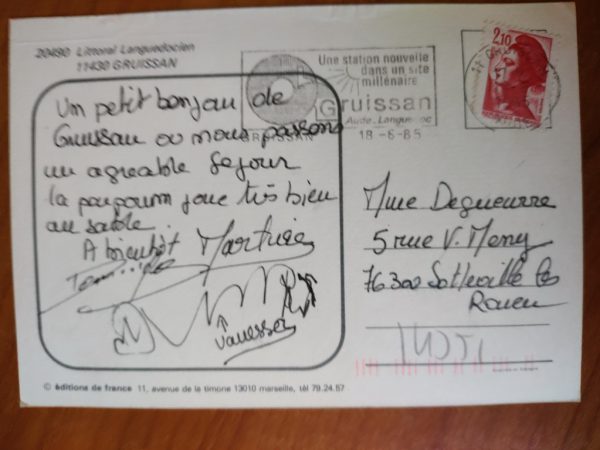 20490 Littoral Languedocien
11430 GRUISSAN
Une station nouvelle
dans un site
millénaire
Gruissan
Aude. Languedoc
GRUISSAN
18-6-85
2,10
Un petit bonjour de
Gruissan ou nous passons
un agreable sejour
la joue très bien
au sable
A bientôt Martine
Vanessa
Mme Degueurre
5 rue V. Meny
76300 Sotteville les
Rouen
© éditions de france 11, avenue de la timone 13010 marseille, tél 79.24.57